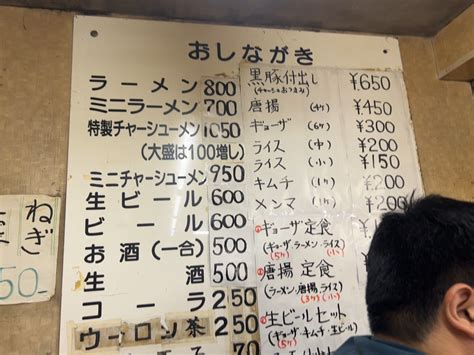 おしながき
ラーメン 800
ミニラーメン 700
特製チャーシューメン 1050
(大盛は100増し)
ミニチャーシューメン 950
生ビール 600
ビール 600
お酒(一合) 500
生酒 500
コーラ 250
ウーロン茶 250
黒豚付出し ¥650
(チャーシューおつまみ)
唐揚 (4ケ) ¥450
ギョーザ (6ケ) ¥300
ライス (中) ¥200
ライス (小) ¥150
キムチ (1ケ) ¥200
メンマ (1ケ) ¥200
ギョーザ定食
(ギョーザ・ラーメン・ライス)
(5ケ) (小)
唐揚定食
(ラーメン・唐揚・ライス)
(3ケ) (小)
生ビールセット
(ギョーザ・キムチ・生ビール)
(5ケ)
ねぎ
50-